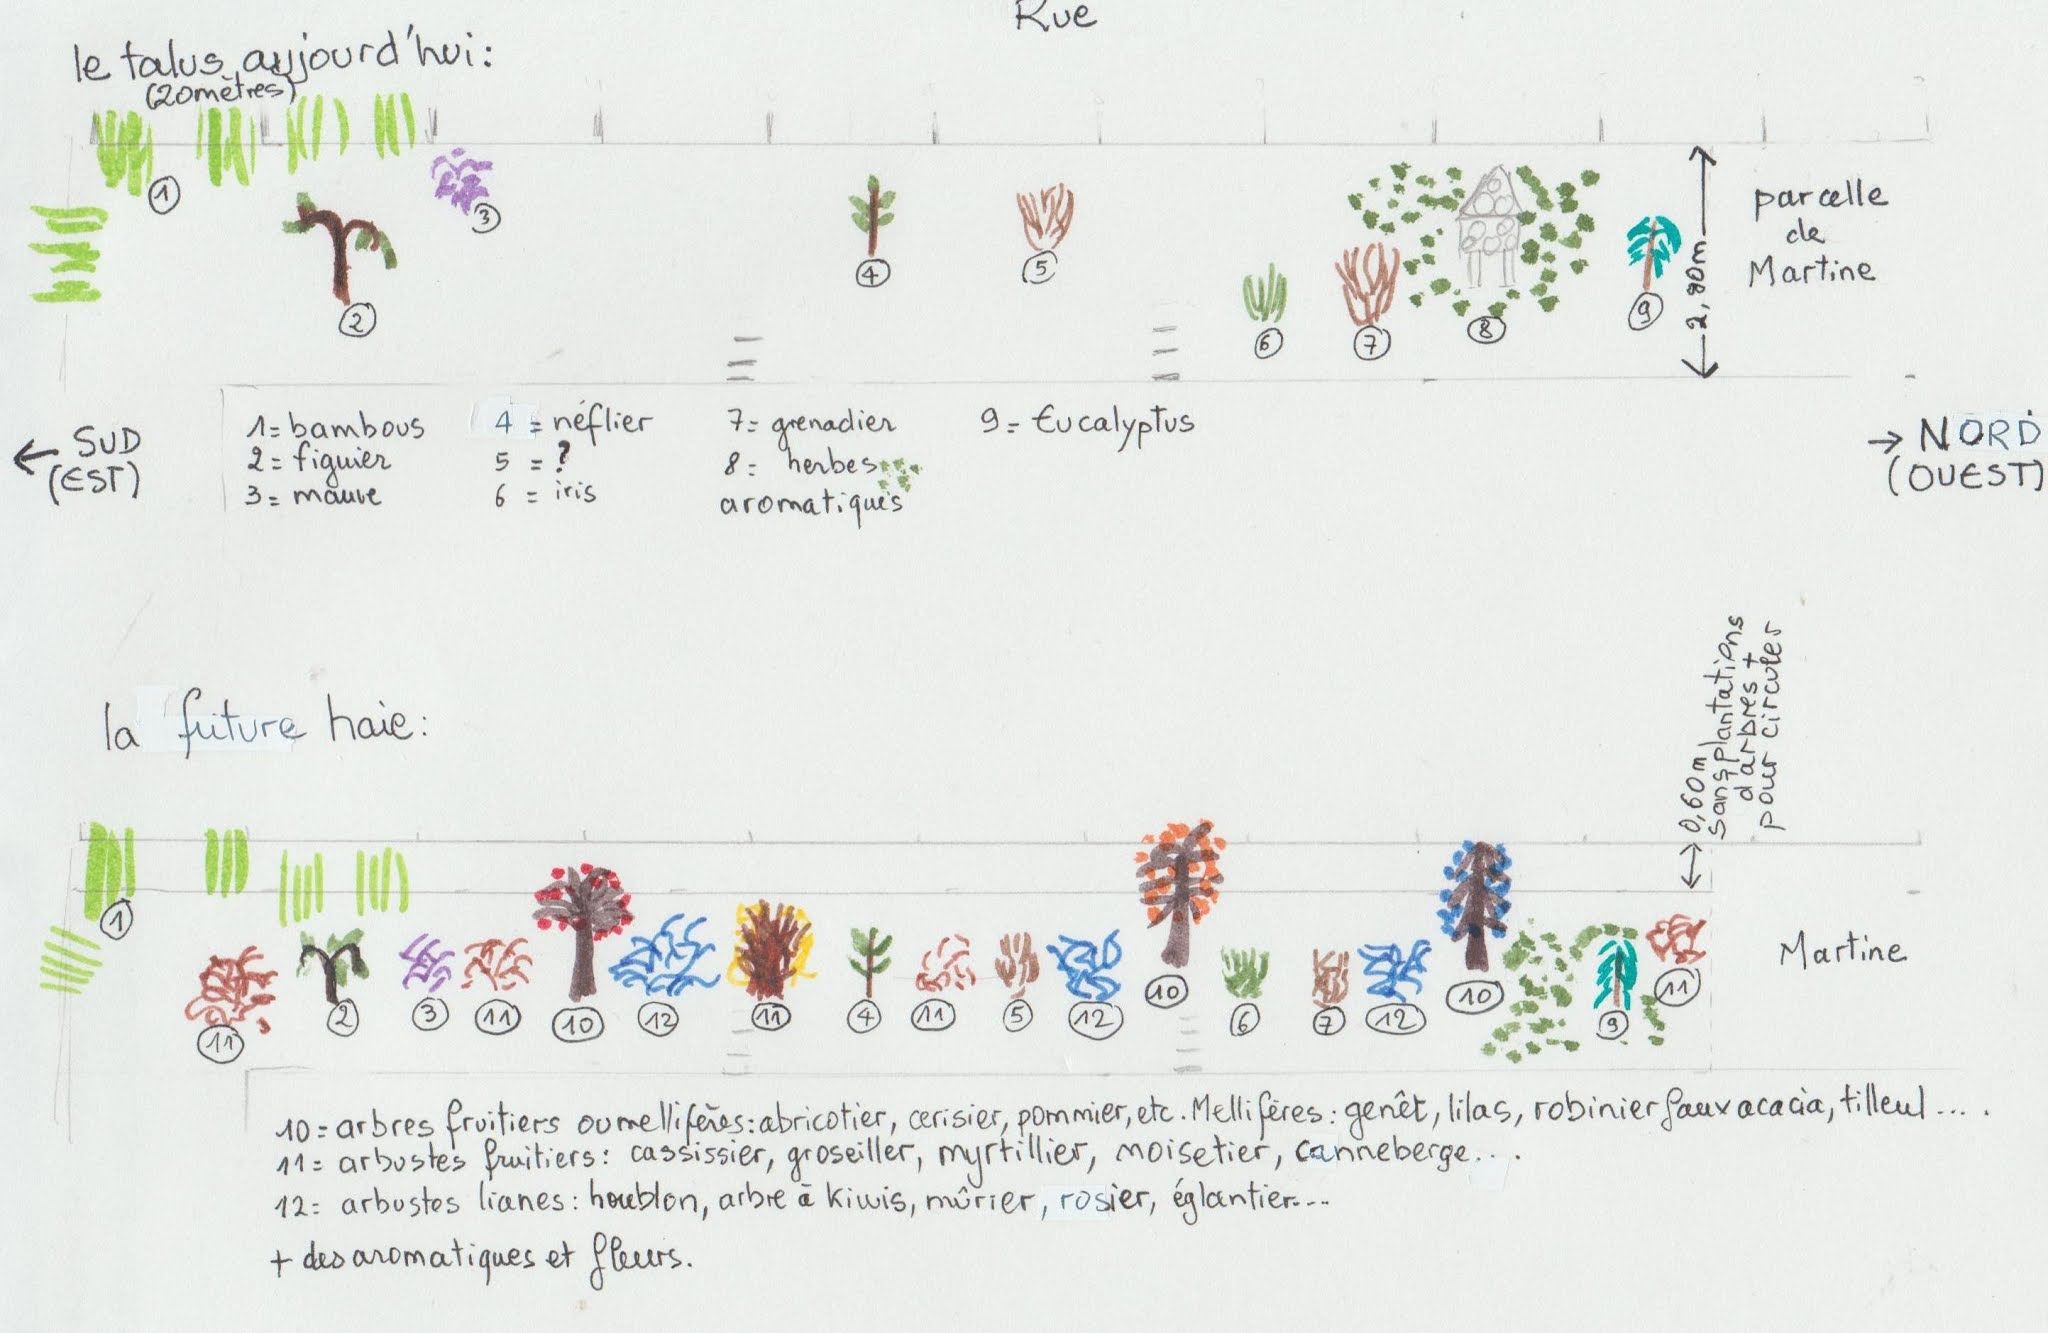 Rue
le talus aujourd'hui:
(20mètres)
1
2
3
4
5
6
7
8
9
2,80m
parcelle
de
Martine
← SUD
(EST)
→ NORD
(OUEST)
1= bambous
2= figuier
3= mauve
4= néflier
5 = ?
6 = iris
7= grenadier
8= herbes
aromatiques
9= Eucalyptus
la future haie:
0,60m
sans plantations
d'arbres +
pour circuler
1
11
2
3
11
10
12
11
4
11
5
12
10
6
7
12
10
9
11
Martine
10= arbres fruitiers ou mellifères: abricotier, cerisier, pommier, etc. Mellifères: genêt, lilas, robinier faux acacia, tilleul.....
11= arbustes fruitiers: cassissier, groseiller, myrtillier, noisetier, canneberge...
12= arbustes lianes: houblon, arbre à kiwis, mûrier, rosier, églantier...
+ des aromatiques et fleurs.